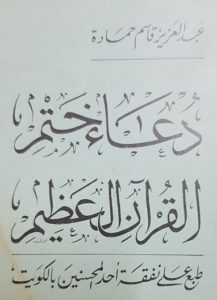 عبد العزيز قاسم حمادة
دعاء ختم
القرآن العظيم
طبع على نفقة أحد المحسنين بالكويت